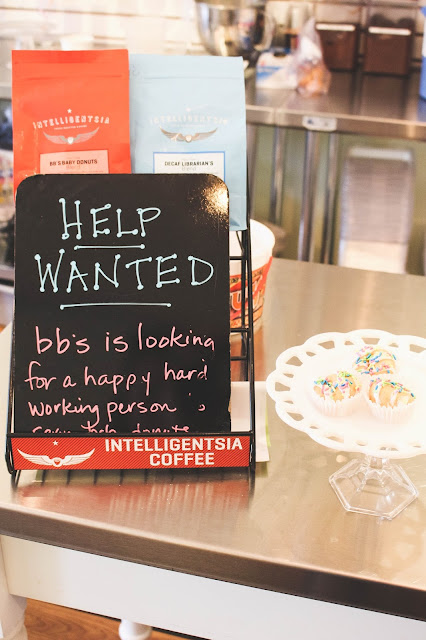 INTELLIGENTSIA
BB'S BABY DONUTS
INTELLIGENTSIA
DECAF LIBRARIAN'S
HELP
WANTED
bb's is looking
for a happy hard
working person
donuts
INTELLIGENTSIA
COFFEE